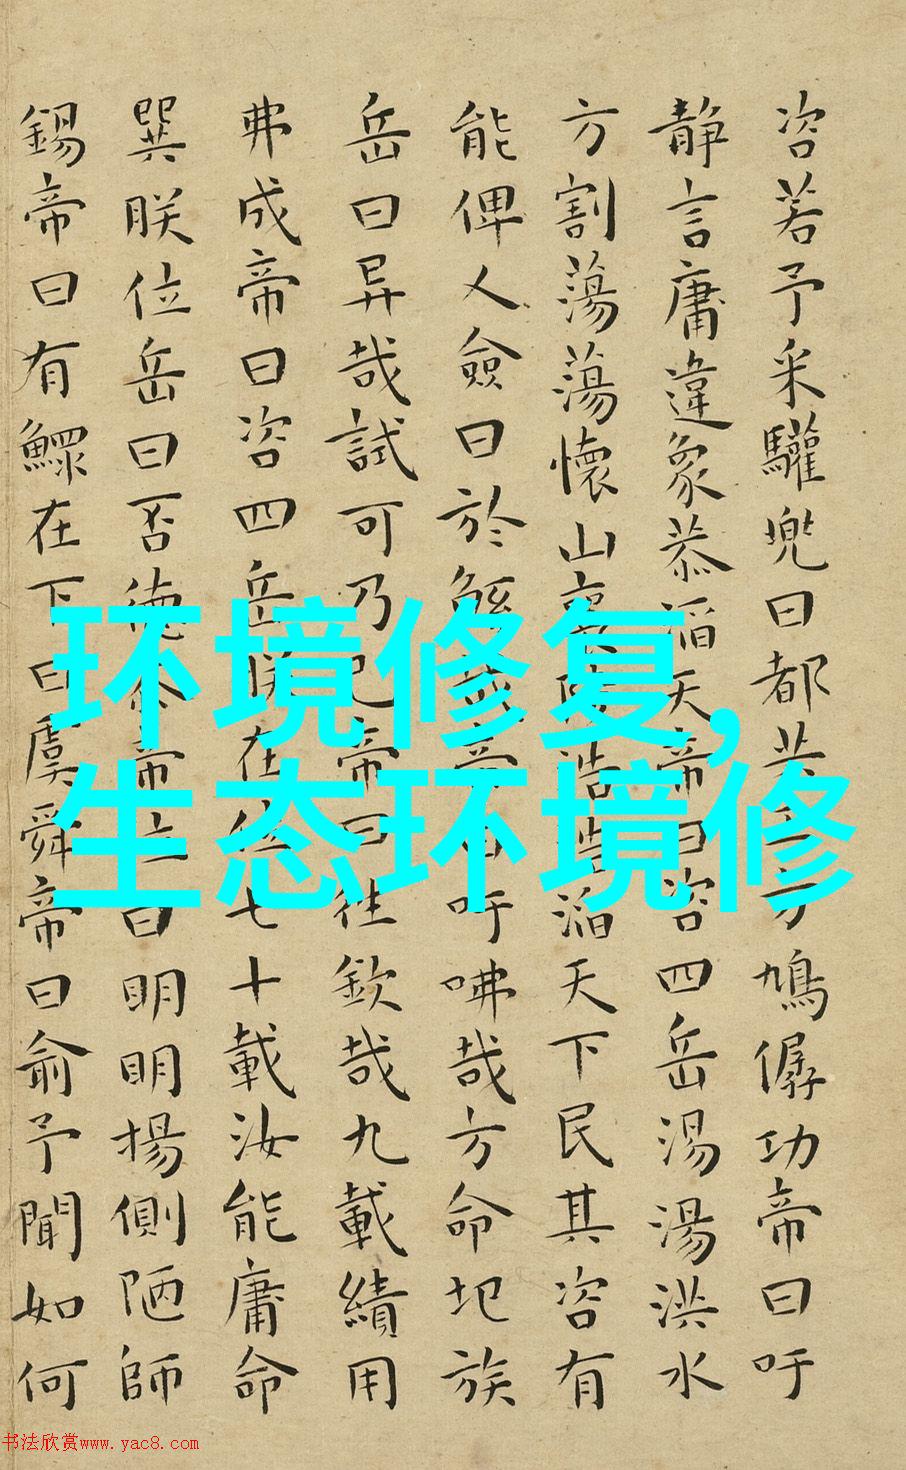 咨若予采驩兜曰都共工方鳩僝功帝曰吁
静言庸違象恭滔天帝曰咨四岳湯湯洪水
方割蕩蕩懷山襄陵浩浩滔天下民其咨有
能俾乂僉曰於鯀哉帝曰吁咈哉方命圮族
岳曰异哉試可乃已帝曰往欽哉九載績用
弗成帝曰咨四岳朕在位七十載汝能庸命
巽朕位岳曰否德忝帝位曰明明揚側陋師
錫帝曰有鰥在下曰虞舜帝曰俞予聞如何
环境修复,
生态环境修
书法欣赏www.yac8.com